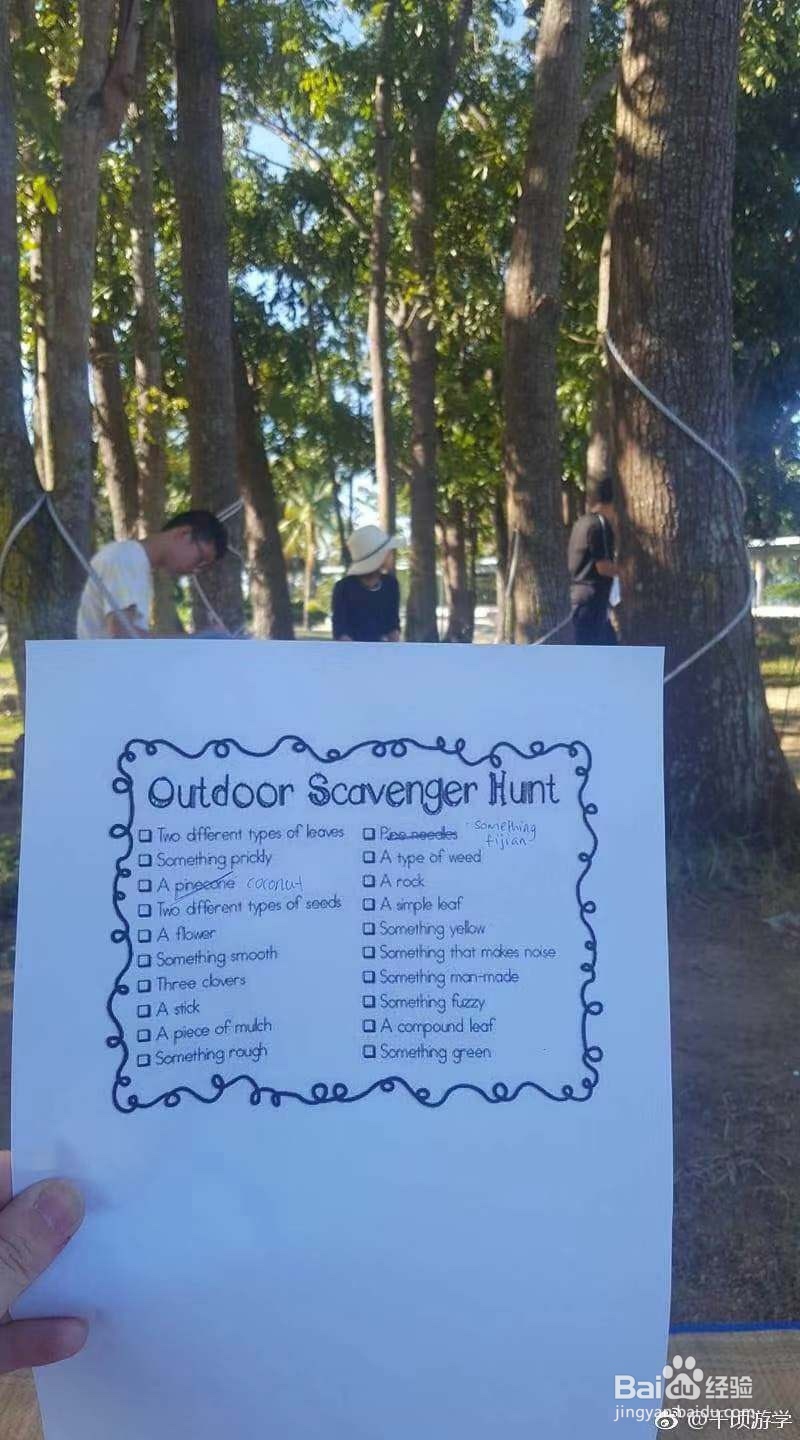 Outdoor Scavenger Hunt
Two different types of leaves
Something prickly
A pinecone coconut
Two different types of seeds
A flower
Something smooth
Three clovers
A stick
A piece of mulch
Something rough
Pine needles something
fijian
A type of weed
A rock
A simple leaf
Something yellow
Something that makes noise
Something man-made
Something fuzzy
A compound leaf
Something green
Bai 经验
jingyan.baidu.com
@千顷游学